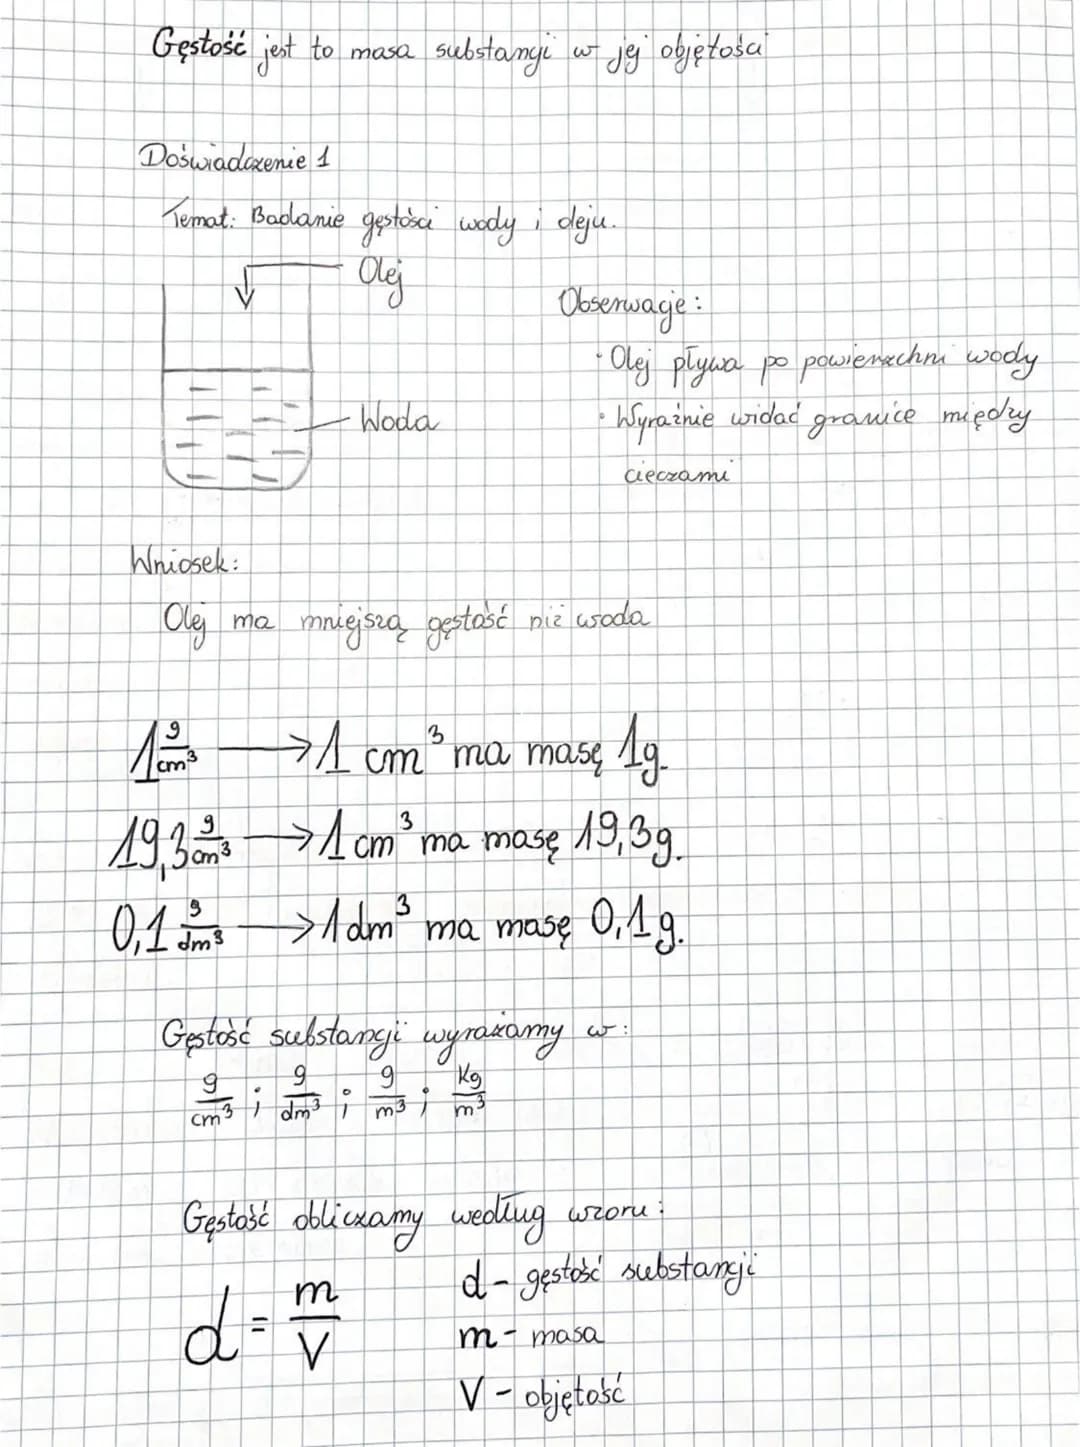 Gęstość jest to masa substancji w jej objętości
Doświadczenie 1
Temat: Badanie gęstości wody i oleju.
Olej
Woda
Obserwacje:
· Olej pływa po powierzchni wody
· Wyraźnie widać granice między
cieczami
Wniosek:
Olej ma mniejszą gęstość niż woda
1 g/cm³ → 1 cm³ ma masę 1g.
19,3 g/cm³ → 1 cm³ ma masę 19,3g.
0,1 g/dm³ → 1 dm³ ma masę 0,1g.
Gęstość substancji wyrażamy w:
g/cm³ ; g/dm³ ; g/m³ ; Kg/m³
Gęstość obliczamy według wzoru:
d = m/V
d - gęstość substancji
m - masa
V - objętość